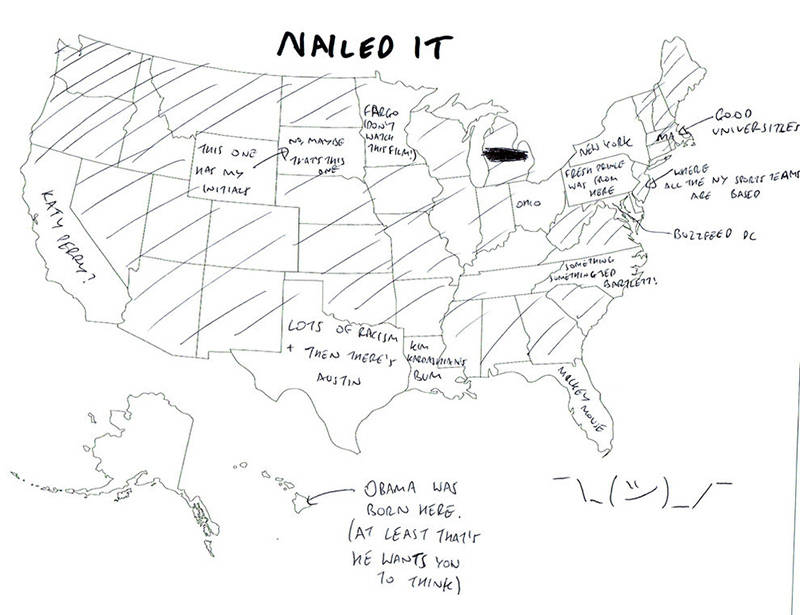 NAILED IT
FARGO
(DON'T
WATCH
THIS FILM!)
THIS ONE
HAS MY
INITIALS
NO, MAYBE
THAT'S THIS
ONE
KATY PERRY?
NEW YORK
MA
GOOD
UNIVERSITIES
FRESH PRINCE
WAS FROM
HERE
WHERE
ALL THE NY SPORTS TEAMS
ARE BASED
OHIO
BUZZFEED DC
SOMETHING
SOMETHING JED
BARTLETT!
LOTS OF RACISM
+ THEN THERE'S
AUSTIN
KIM
KARDASHIAN'S
BUM
MICKEY MOUSE
OBAMA WAS
BORN HERE.
(AT LEAST THAT'S
HE WANTS YOU
TO THINK)
¯\_(ツ)_/¯